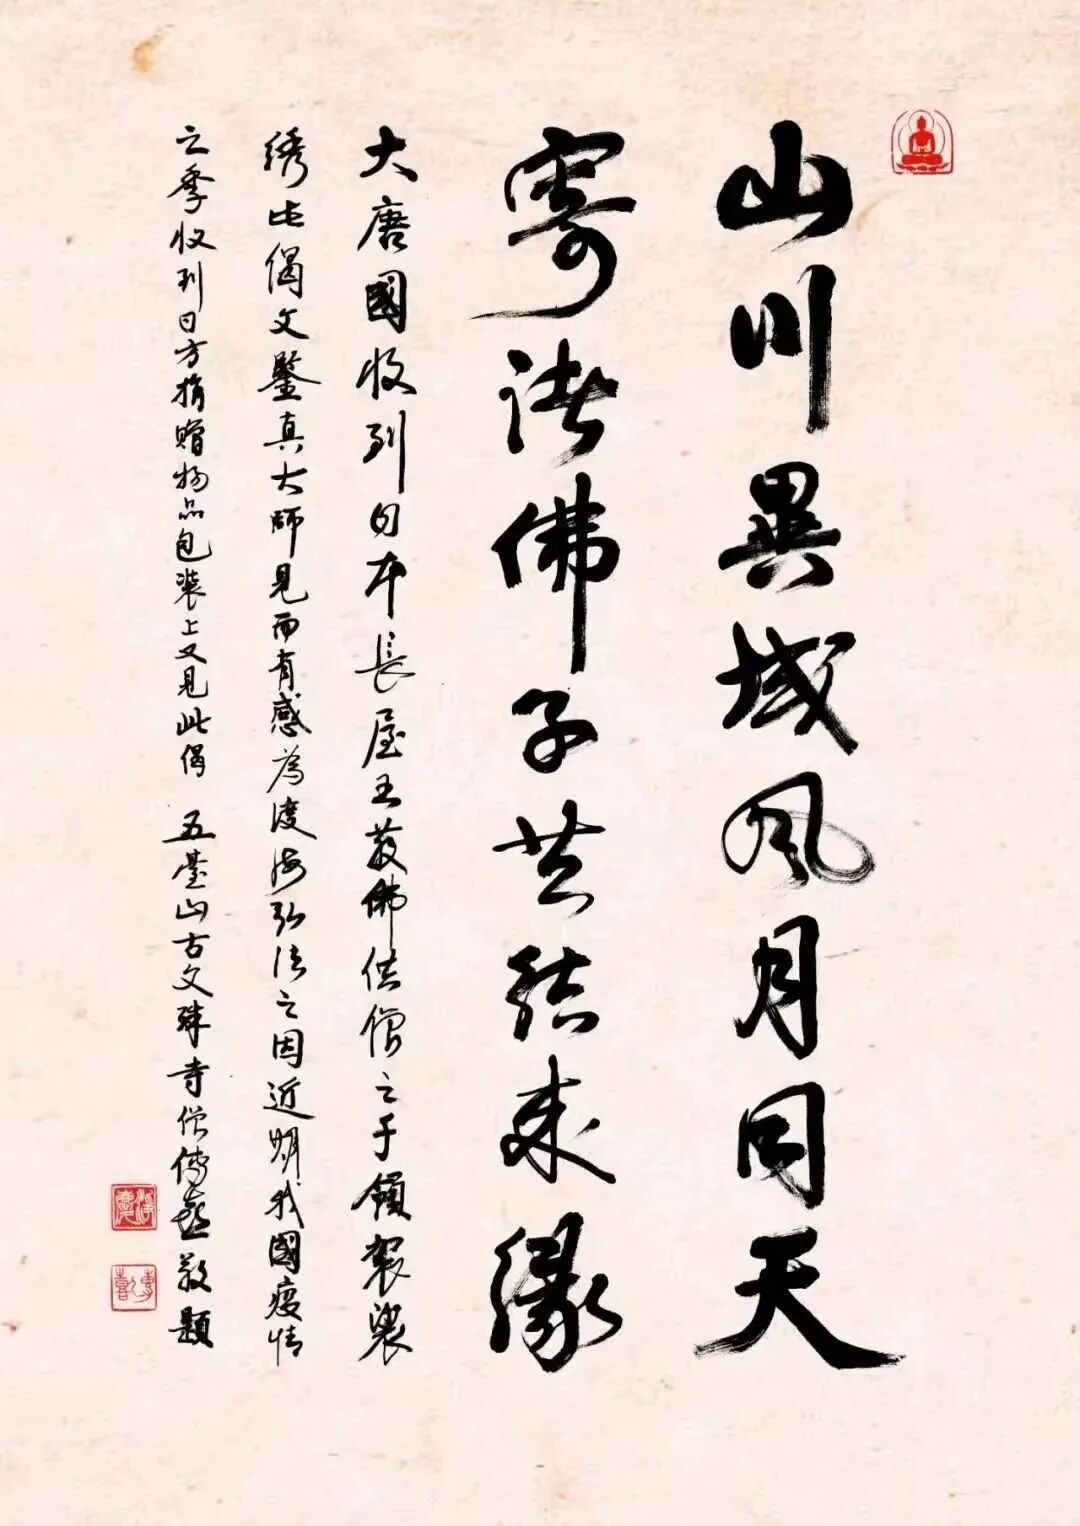 山川異域風月同天
寄諸佛子共結來緣
大唐國收到日本長屋王敬佛供僧之千領袈裟
绣此偈文鑒真大師見而有感為渡海弘法之因近期我國疫情
之季收到日方捐赠物品包裝上又見此偈 五臺山古文殊寺僧傳喜敬題
傳喜